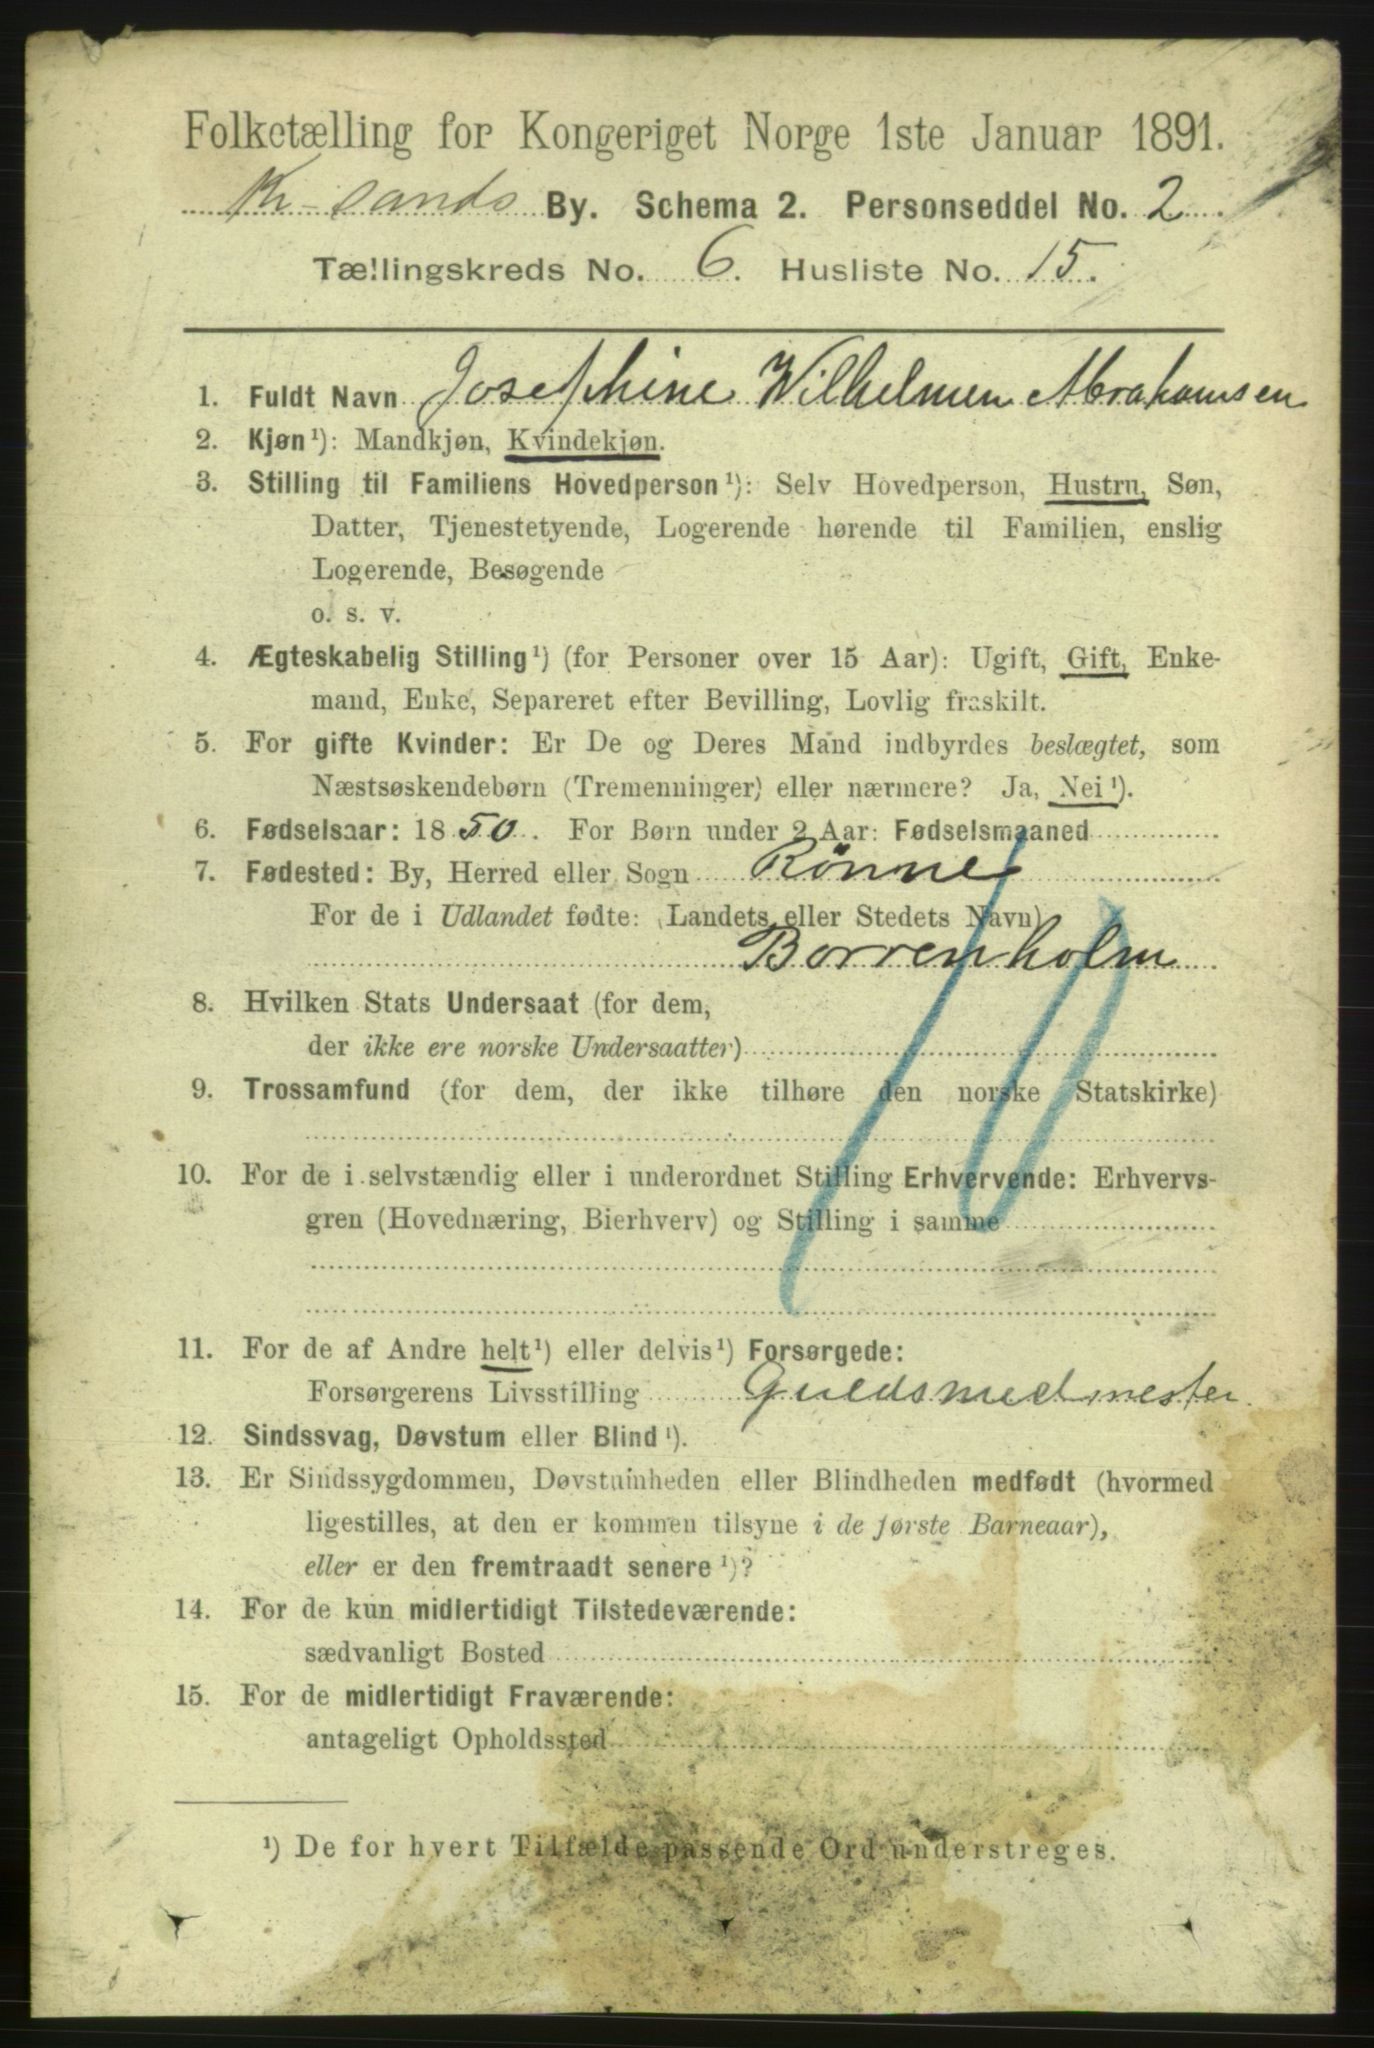 Folketælling for Kongeriget Norge 1ste Januar 1891.
Kr-sands By. Schema 2. Personseddel No. 2.
Tællingskreds No. 6. Husliste No. 15.
1. Fuldt Navn Josephine Wilhelmen Abrahamsen
2. Kjøn¹): Mandkjøn, Kvindekjøn.
3. Stilling til Familiens Hovedperson¹): Selv Hovedperson, Hustru, Søn,
Datter, Tjenestetyende, Logerende hørende til Familien, enslig
Logerende, Besøgende
o. s. v.
4. Ægteskabelig Stilling¹) (for Personer over 15 Aar): Ugift, Gift, Enke-
mand, Enke, Separeret efter Bevilling, Lovlig fraskilt.
5. For gifte Kvinder: Er De og Deres Mand indbyrdes beslægtet, som
Næstsøskendebørn (Tremenninger) eller nærmere? Ja, Nei¹).
6. Fødselsaar: 1850. For Børn under 2 Aar: Fødselsmaaned
7. Fødested: By, Herred eller Sogn Rönne
For de i Udlandet fødte: (Landets eller Stedets Navn)
Borrenholm
8. Hvilken Stats Undersaat (for dem,
der ikke ere norske Undersaatter)
9. Trossamfund (for dem, der ikke tilhøre den norske Statskirke)
10. For de i selvstændig eller i underordnet Stilling Erhvervende: Erhvervs-
gren (Hovednæring, Bierhverv) og Stilling i samme
10
11. For de af Andre helt¹) eller delvis¹) Forsørgede:
Forsørgerens Livsstilling Guldsmedmester
12. Sindssvag, Døvstum eller Blind¹).
13. Er Sindssygdommen, Døvstumheden eller Blindheden medfødt (hvormed
ligestilles, at den er kommen tilsyne i de første Barneaar),
eller er den fremtraadt senere¹)?
14. For de kun midlertidigt Tilstedeværende:
sædvanligt Bosted
15. For de midlertidigt Fraværende:
antageligt Opholdssted
¹) De for hvert Tilfælde passende Ord understreges.